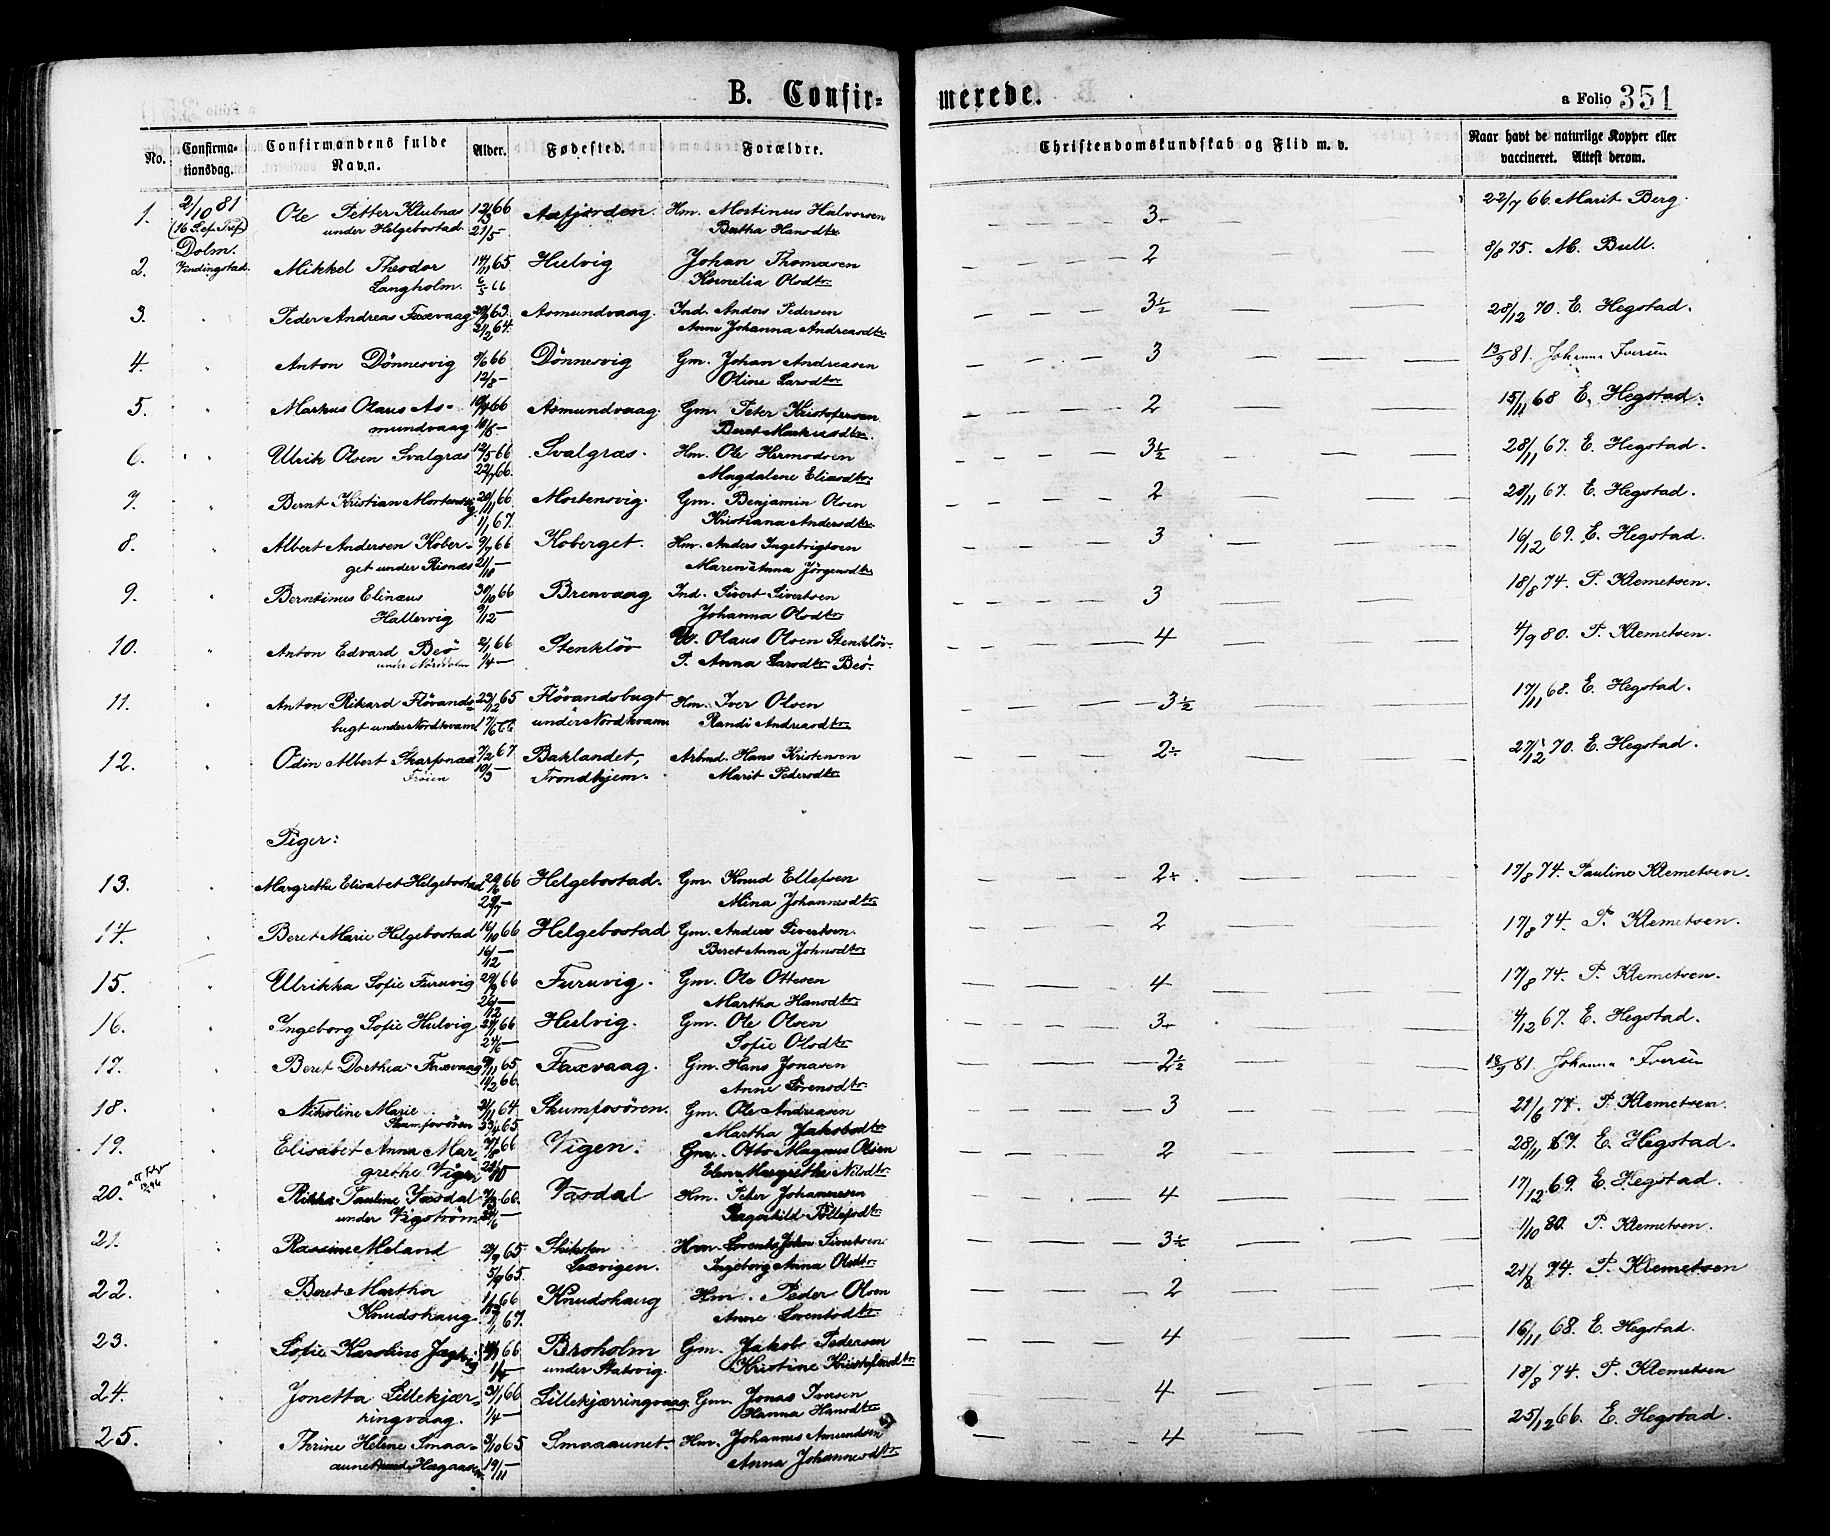 B. Confir-
merede.
a Folio 351
No.
Confirma-
tionsdag.
Confirmandens fulde
Navn.
Alder.
Fødested.
Forældre.
Christendomskundskab og Flid m. v.
Naar havt de naturlige Kopper eller
vaccineret. Attest derom.
1. 2/10 81 Ole Petter Klubnæs 12/3 66 Aafjorden. Hm. Mortinus Halvorsen 3+ 22/7 66. Marit Berg.
(16 S. ef. Tref.) under Helgebostad 21/5 — Bertha Hansdtr
Dolm.
2. Vindingstad. Mikkel Theodor 14/11 65. Hulvig Johan Thomasen 2 8/8 75. M. Bull.
Langholm. 6/5 66 Kornelia Olsdtr
3. Peder Andreas Faxvaag 63. Asmundvaag. Ind. Anders Pedersen 3½ 28/12 70. E. Hegstad.
21/2 64. Anne Johanna Andreasdtr
4. Anton Dönnesvig 9/6 66 Dönnesvig Gm. Johan Andreasen 3 13/9 81. Johanna Iversen
12/8 — Oline Larsdtr
5. Markus Olaus As- 66 Asmundvaag. Gm. Peter Kristofersen 2 15/11 68 E. Hegstad.
mundvaag Beret Markusdtr.
6. Ulrik Olsen Svalgræs 12/5 66 Svalgræs. Hm. Ole Hermodsen 3½ 28/11 67. E. Hegstad.
22/7 66. Magdalene Eliasdtr
7. Bernt Kristian Mortensvig 20/11 66. Mortensvig. Gm. Benjamin Olsen 2 28/11 67. E. Hegstad.
1/1 67. Kristiana Andersdtr.
8. Albert Andersen Kober- 9/9 66 Koberget. Hm. Anders Ingebrigtsen 3 16/12 69. E. Hegstad.
get under Risnæs 21/10 — Maren Anna Jörgensdtr
9. Berntinus Elinæus 30/10 66 Brenvaag Ind. Sivert Sivertsen 3 18/8 74. P. Klemetsen.
Hallervig 9/12 — Johanna Olsdtr
10. Anton Edvard Beö 2/1 66 Stenklöv U. Olaus Olsen Stenklöv. 4 4/9 80. P. Klemetsen.
under Nordholm 1/4 — P. Anna Larsdtr Beö.
11. Anton Rikard Flövands- 23/12 65 Flövandsbugt Hm. Iver Olsen 3½ 17/11 68. E. Hegstad.
bugt under Nordkvam 17/6 66 under Nordkvam Randi Andreasdtr
12. Odin Albert Skarpnæs 7/2 67. Baklandet, Arbmd. Hans Kristensen 2÷ 27/12 70. E. Hegstad.
Fröien 10/3 — Trondhjem. Marit Pedersdtr
Piger:
13. Margrethe Elisabet Helgebostad 66 Helgebostad. Gm. Knud Ellefsen 2÷ 17/8 74. Pauline Klemetsen.
29/7 — Mina Johannesdtr
14. Beret Marie Helgebostad 16/10 66 Helgebostad Gm. Anders Sivertsen. 2 17/8 74. P. Klemetsen.
16/12 — Beret Anna Johnsdtr
15. Ulrikka Sofie Furuvig 66 Furuvig. Gm. Ole Ottesen 4 17/8 74. P. Klemetsen.
26/12 — Martha Hansdtr
16. Ingeborg Sofie Hulvig 66 Hulvig. Gm. Ole Olsen 3+ 4/12 67. E. Hegstad.
24/6 — Sofie Olsdtr
17. Beret Dorthea Faxvaag 9/11 65. Faxvaag. Gm. Hans Jonasen 2½ 18/9 81. Johanna Iversen
11/2 66. Anne Sörensdtr
18. Nikoline Marie 64. Skumpsören. Gm. Ole Andreasen 3 21/6 77. P. Klemetsen.
Skumpsören 23/4 65 Martha Jakobsdtr
19. Elisabet Anna Mar- 66 Vigen. Gm. Otto Magnus Olsen 2 28/11 67. E. Hegstad.
grethe Vigen Elen Margrethe Nilsdtr
20. Rikka Pauline Vasdal 66. Vasdal Hm. Peter Johannesen 4 17/12 69. E. Hegstad.
under Vigström Ragnhild Tollefsdtr
21. Rassine Meland 65. Skiksten Hm. Lorents Johan Sivertsen 3½ 1/10 80. P. Klemetsen.
5/9 65. Laxvigen. Ingeborg Anna Olsdtr
22. Beret Martha 66. Knudshaug Hm. Peder Olsen 2 21/8 74. P. Klemetsen
Knudshaug 1/1 67. Anne Lorentsdtr
23. Sofie Karoline Jægtvig 66 Broholm Gm. Jakob Pedersen 4 16/11 68. E. Hegstad.
under Statsvig. Kristine Kristofersdtr
24. Jonetta Lillekjær- 31/1 66 Lillekjærringvaag Gm. Jonas Iversen 4 18/8 74. P. Klemetsen
ringvaag. 1/4 — Hanna Hansdtr
25. Therine Helene Smaa- 3/10 65. Smaaaunet. Hm. Johannes Amundsen 4 25/12 66. E. Hegstad.
aunet 19/11 — Anna Johannesdtr